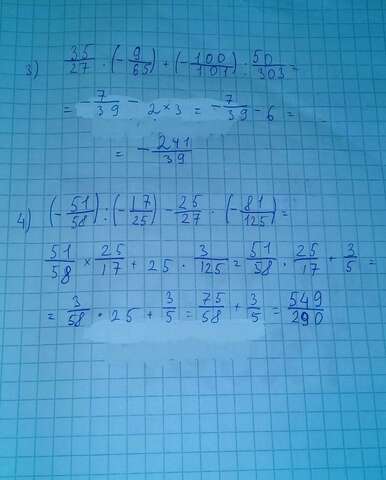 3) 35/27 · (-9/65) + (-100/101) : 50/303 =
= -7/39 - 2 × 3 = -7/39 - 6 =
= -241/39
4) (-51/58) : (-17/25) - 25/27 · (-81/125) =
51/58 × 25/17 + 25 · 3/125 = 51/58 · 25/17 + 3/5 =
= 3/58 · 25 + 3/5 = 75/58 + 3/5 = 549/290